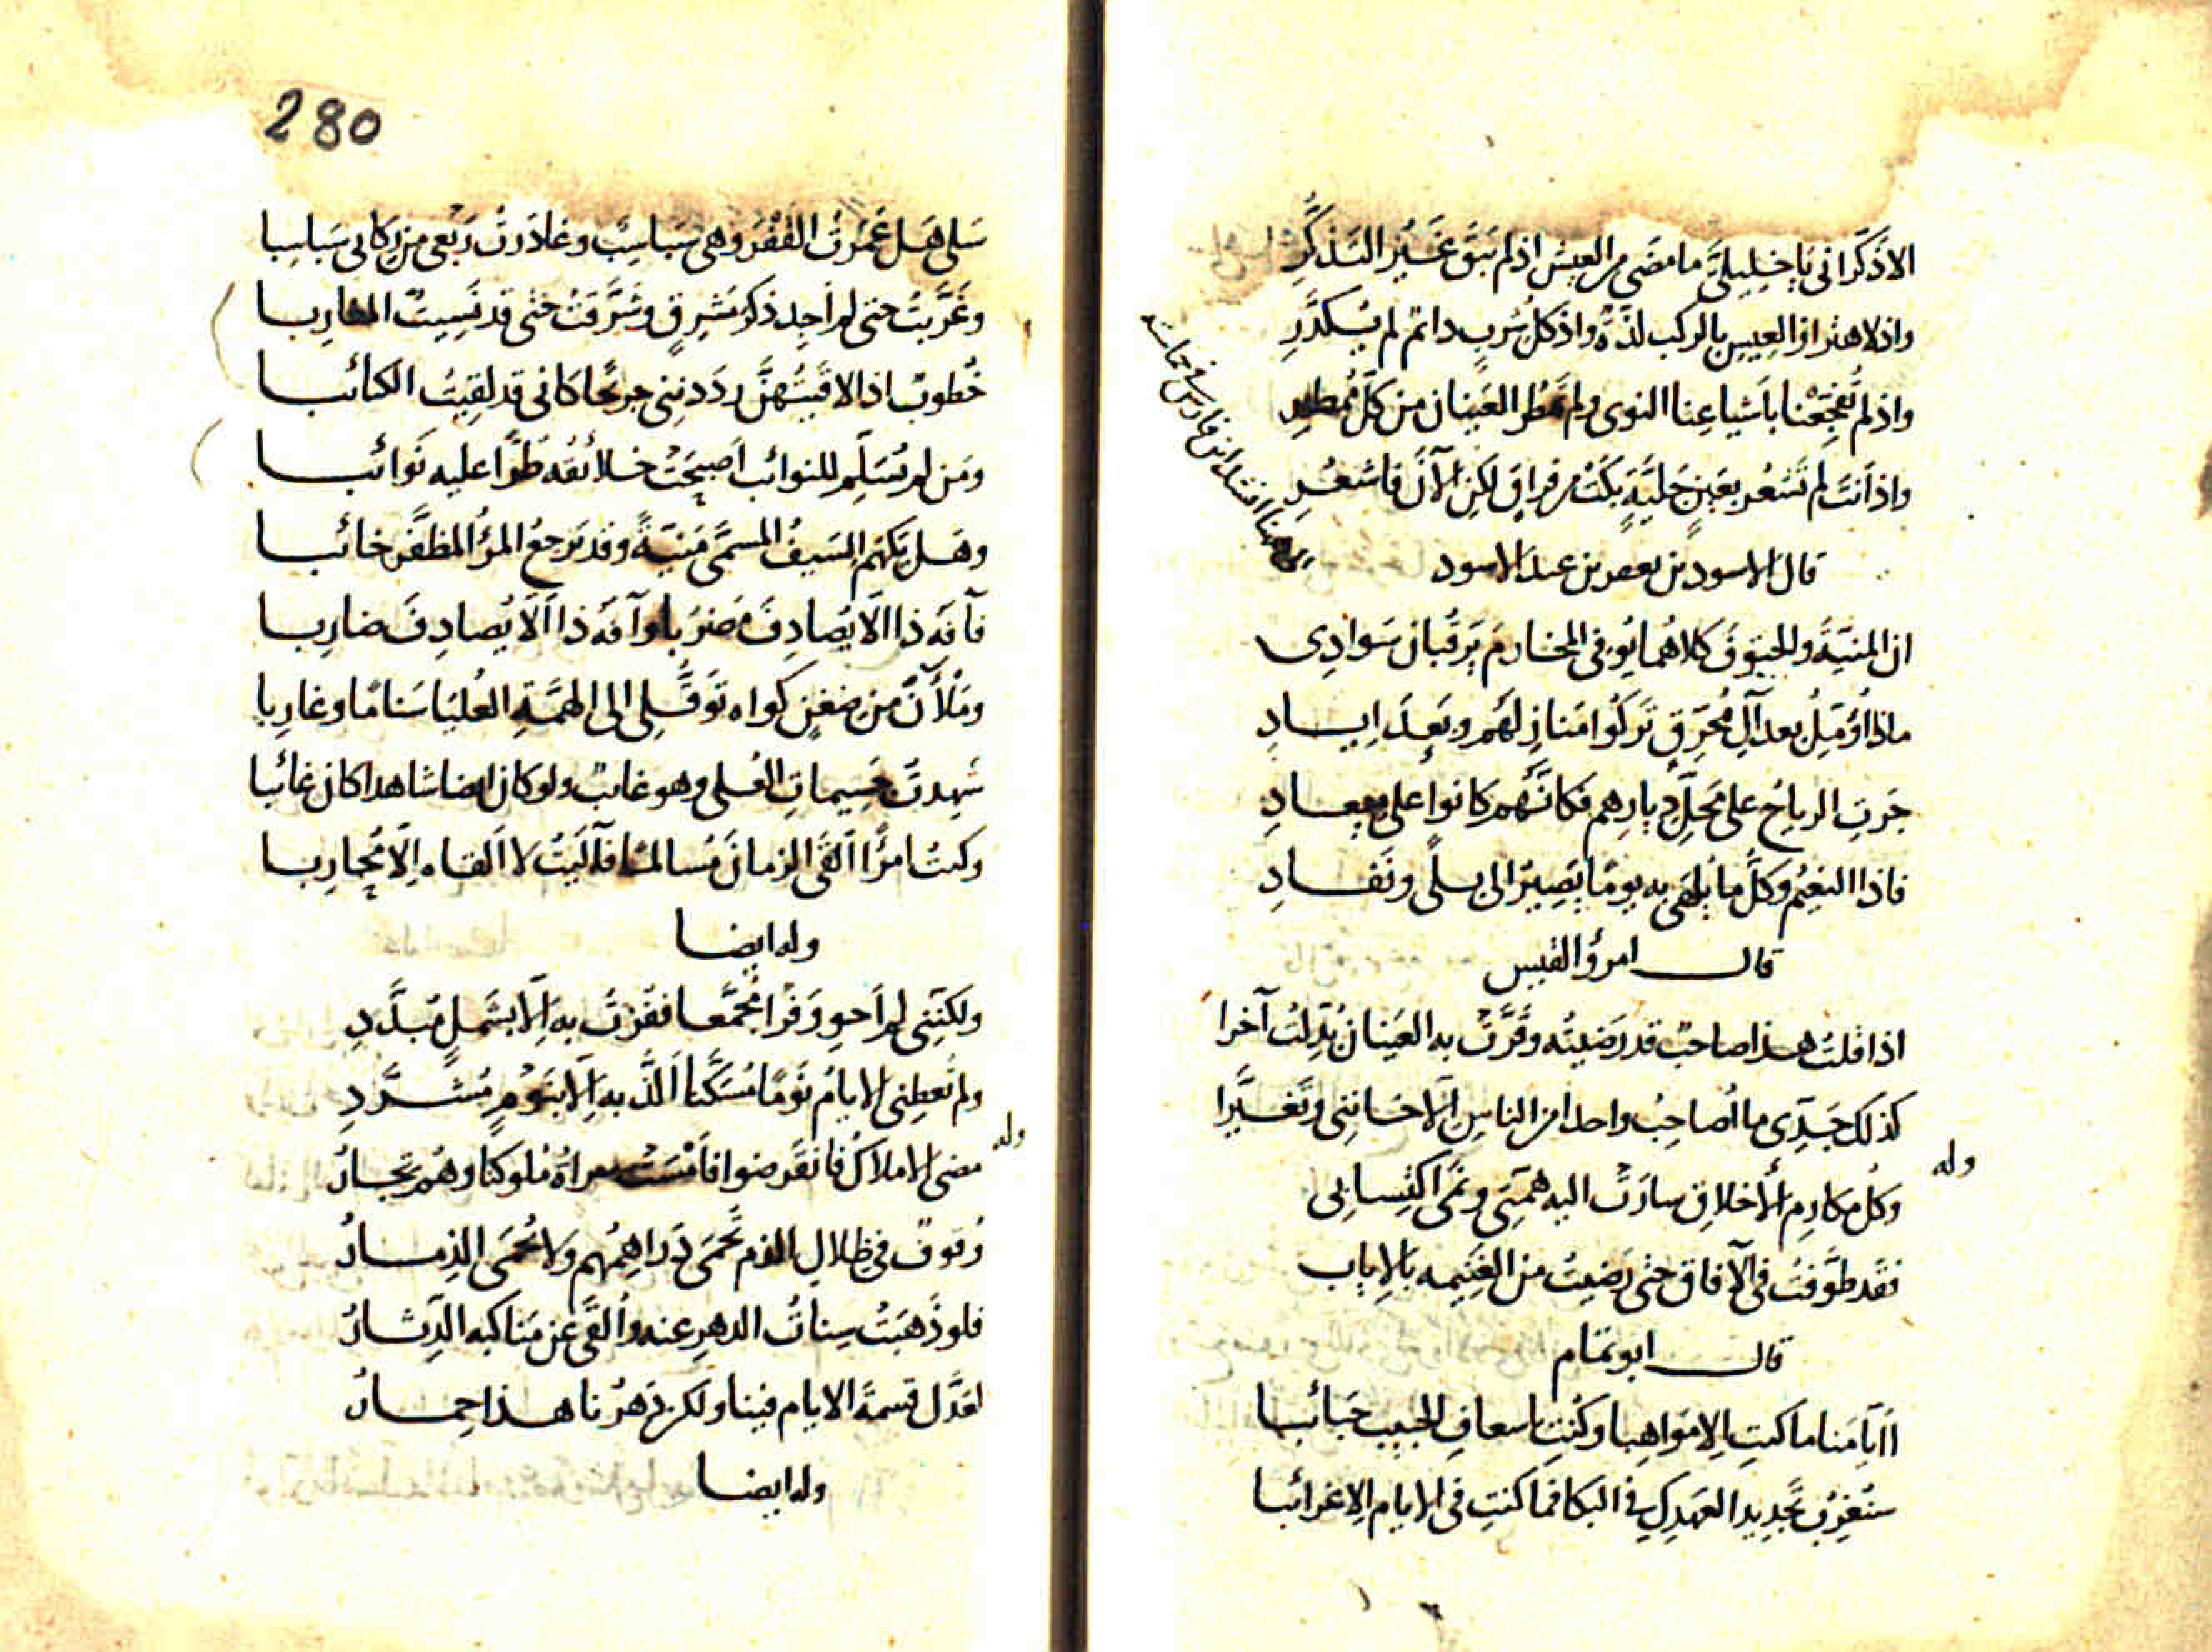 الا ذَكِّراني يا خليليَّ ما مضى من العيش اذ لم يَبقَ غَيرُ التذكُّرِ
واذ لاهتزاز العيس بالركب لذّة واذ كل شرب دائم لم يكدَّرِ
واذ لم تُفجِّعنا باشياعنا النوى ولم تمطر العينان من كل مُمطِرِ
واذ أنت لم تشعر بعين جليّةٍ بكت من فراقٍ لكن الآن فاشعُرِ
قال الاسود بن يعفر بن عبد الاسود
ان المنيّةَ والحتوفَ كلاهما يُوفي المخارمَ يرقبان سوادِي
ماذا أؤمّلُ بعد آلِ مُحرِّقٍ تركوا منازلهم وبعدَ إيادِ
جرتِ الرياحُ على محلِّ ديارِهم فكأنّهم كانوا على ميعادِ
فاذا النعيمُ وكلُّ ما يُلهى به يومًا يصيرُ الى بلًى ونفادِ
قال امرؤ القيس
اذا قلتُ هذا صاحبٌ قد رضيتُه وقرَّت به العينان بُدِّلتُ آخرا
كذلك جَدّي ما أُصاحبُ واحدا من الناسِ الّا خانني وتغيَّرا
وله
وكلُّ مكارمِ الأخلاقِ سارَت اليه همّتي ونمى اكتسابي
فقد طوّفتُ في الآفاق حتى رضيتُ من الغنيمه بالإيابِ
قال ابو تمام
أأيّامَنا ما كنتِ الا مواهبا وكنتِ باسعافِ الحبيب حبائبا
سنُغرِبُ تجديدا لعهدكِ في البكا فما كنتِ في الايام الا غرائبا
280
سَلي هل عَمَرتُ القَفْرَ وهي سَباسِبٌ وغادَرتُ رَبعي من رِكابي سَباسِبا
وغَرَّبتُ حتى لم اجد ذكرَ مَشرقٍ وشرَّقتُ حتى قد نَسيتُ المغارِبا
خُطوبٌ اذا لاقَيتُهنَّ رَدَدنَني جريحًا كأني قد لقيتُ الكتائبا
ومَن لم يُسَلِّم للنوائب أصبحت خلائقُه طُرًّا عليه نَوائبا
وهل يَكهَم السيفُ المسمّى منيّةً وقد يَرجعُ المرءُ المظفَّر خائبا
فآفة ذا الّا يُصادِفَ مَضرَبا وآفة ذا الّا يُصادِفَ ضارِبا
ومَلآنَ من ضغنٍ كواه توقُّلي الى الهمّةِ العُليا سَنامًا وغاربا
شهدتُ جسيماتِ العُلى وهو غائبٌ ولو كان ايضا شاهدا كان غائبا
وكنتُ امرأً ألقى الزمانَ مُسالمًا فآليتُ لا ألقاه إلّا مُحاربا
وله ايضا
ولكنّني لم أحوِ وَفْرًا مُجمَّعا ففُزتُ به إلّا بشَملٍ مُبدَّدِ
ولم تُعطِني الايامُ نَومًا مُسَكَّنًا ألَذُّ به إلّا بنَومٍ مُشرَّدِ
وله
مضى الاملاكُ فانقرضوا فأمْسَت سراةُ مُلوكنا وهُم تِجارُ
وُقوفٌ في ظلالِ الذم تُحمى دَراهمُهم ولا تُحمى الذِمارُ
فلو ذهَبَت سِناتُ الدهرِ عنه وأُلقي عن مَناكبه الدِثارُ
لعَدَّل قسمةَ الايام فينا ولكن دَهرُنا هذا حِمارُ
وله ايضا